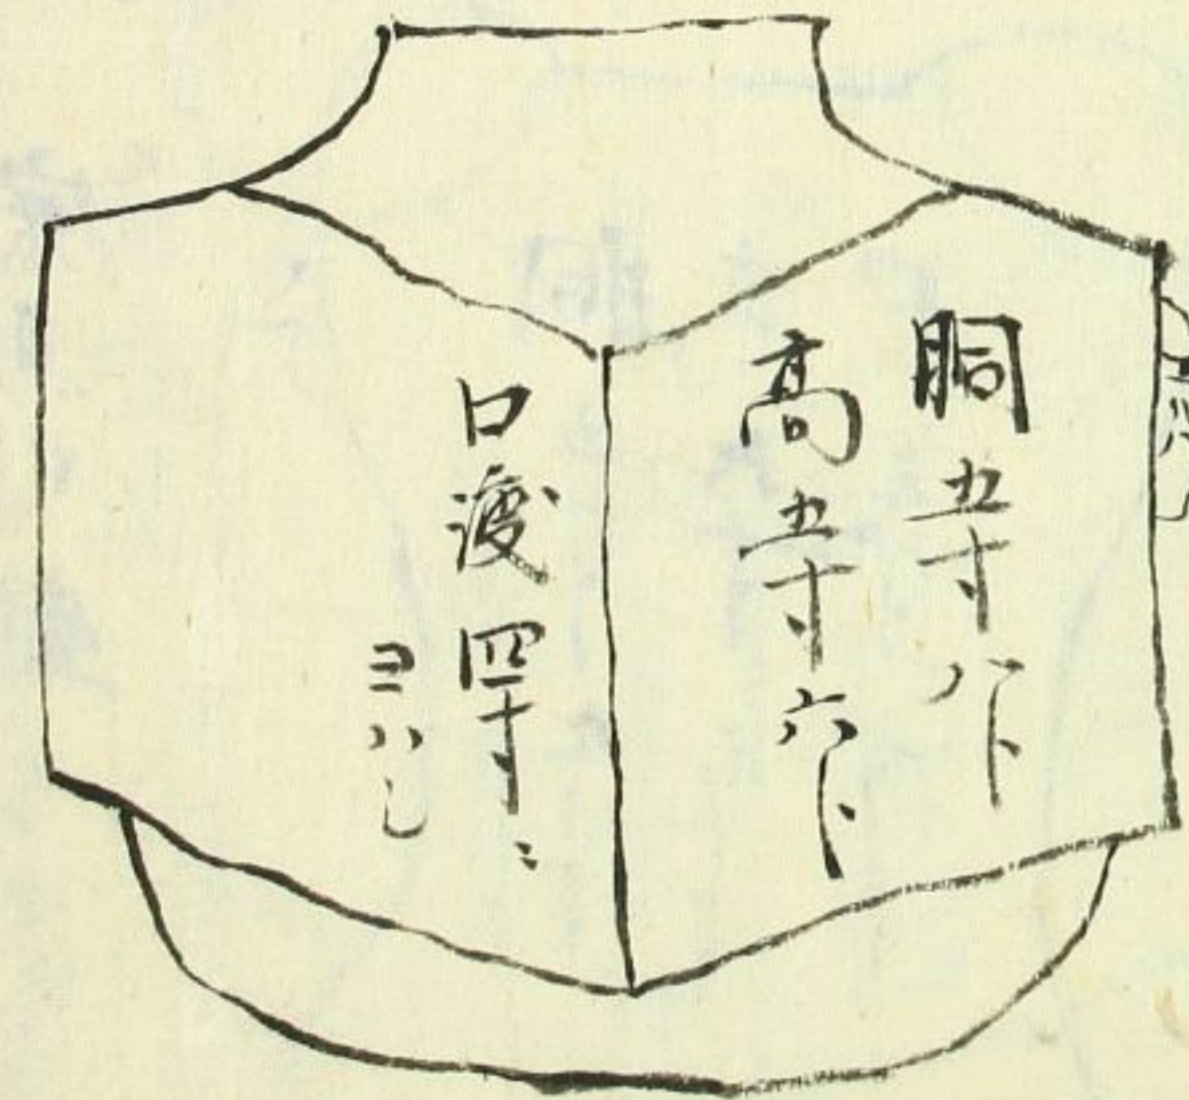 胴五寸八卜
高五寸六卜
口渡四寸ニ
ヨハシ